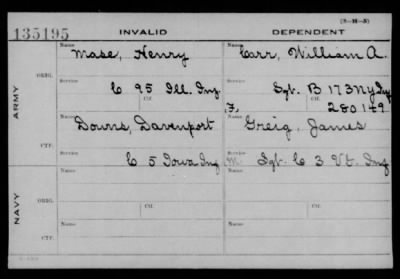 (3-H-5)
135195 INVALID DEPENDENT
Name Name
Mase, Henry Carr, William A.
ORIG. Service Service
C 95 Ill. Inf. Sgt. B 173 NY Inf
Ctf.
F, 280149
ARMY
Name Name
Downs, Davenport Greig, James
CTF. Service Service
C 5 Iowa Inf M. Sgt. C 3 Vt. Inf
Name Name
ORIG. Ctf. Ctf.
NAVY
Name Name
CTF.